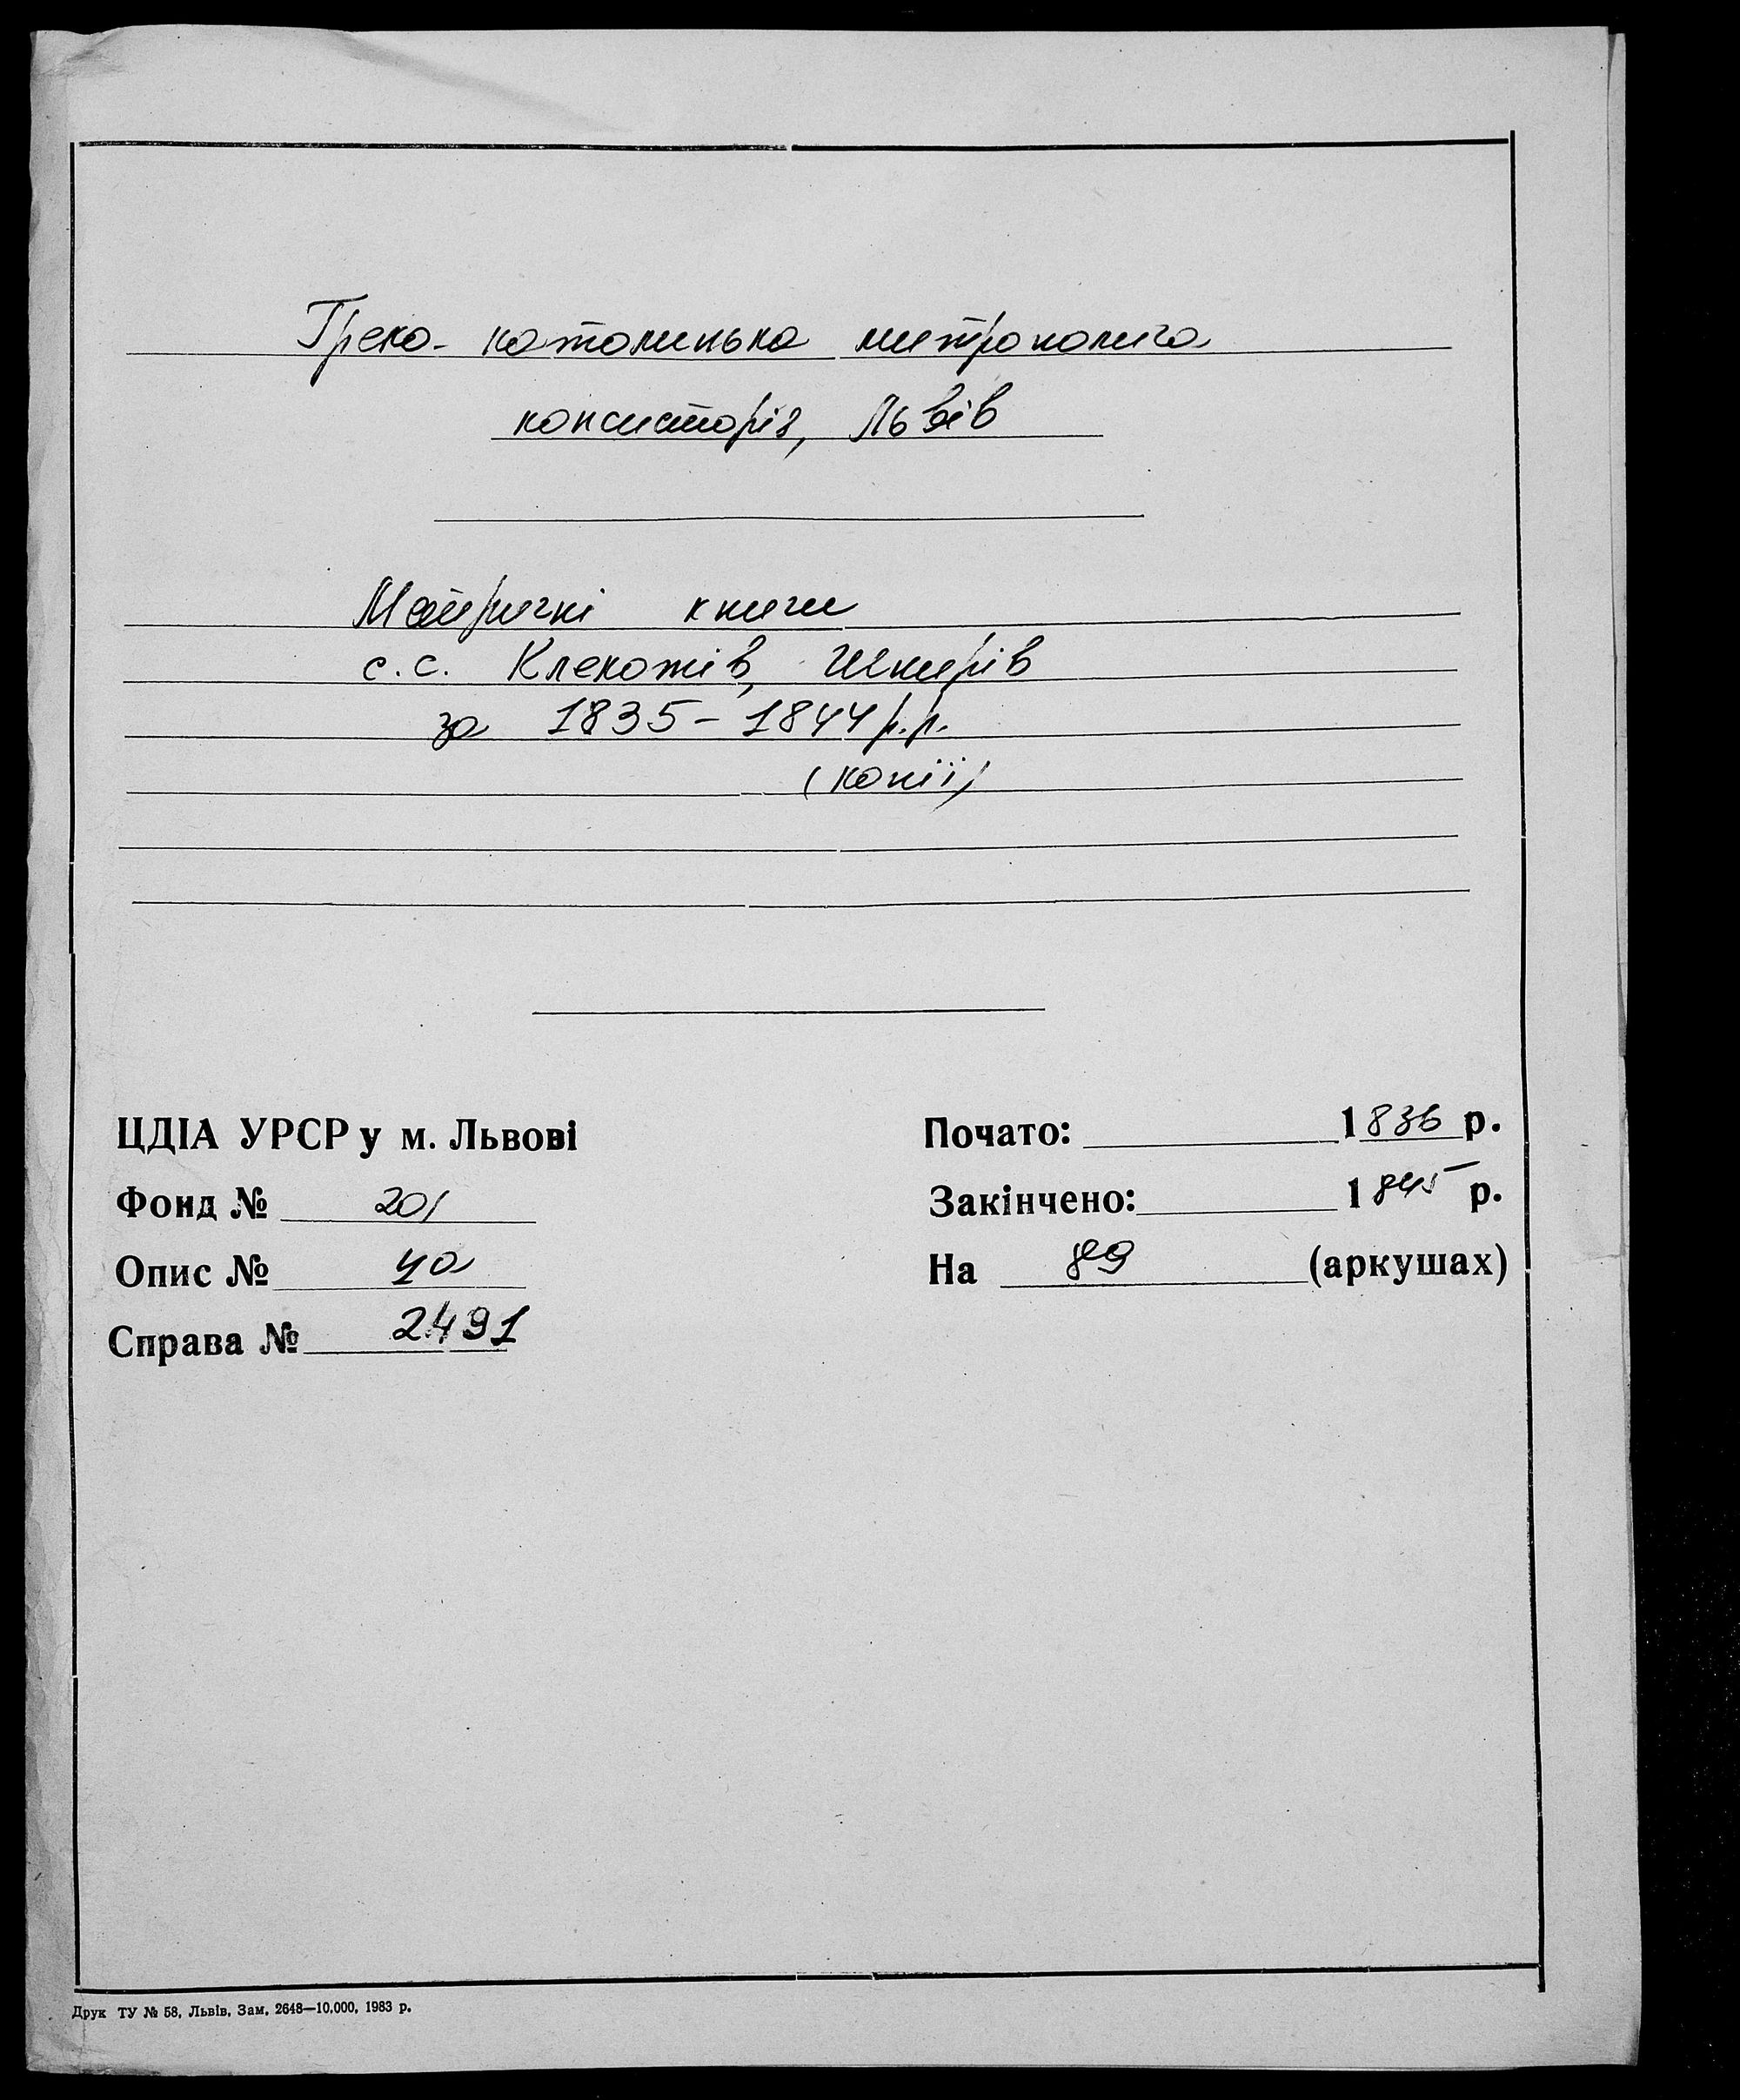 Греко-католицька митрополича
консисторія, Львів
Метричні книги
с.с. Клекотів, Шнирів
за 1835-1844 р.р.
(копії)
ЦДІА УРСР у м. Львові
Фонд № 201
Опис № 4а
Справа № 2491
Почато: 1836 р.
Закінчено: 1845 р.
На 89 (аркушах)
Друк ТУ № 58, Львів, Зам. 2648—10.000, 1983 р.